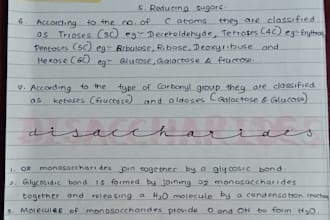 5. Reducing sugars.
6. According to the no. of C atoms they are classified
as Trioses (3C) eg- Deretoldehyde, Tetroses (4C) eg- Erythose
Pentoses (5C) eg- Ribulose, Ribose, Deoxyribuse and
Hexose (6C) eg- Glucose, Galactose & fructose.
According to the type of Carbonyl group they are classified
as ketoses (fructose) and aldoses (Galactose & Glucose)
DISACCHARIDES
disaccharides
1. 02 monosaccharides join together by a glycosic bond.
2. Glycosidic bond is formed by joining 02 monosaccharides
together and releasing a H2O molecule by a condensation reaction
3. Molecules of monosaccharides provide O and OH to form H2O.